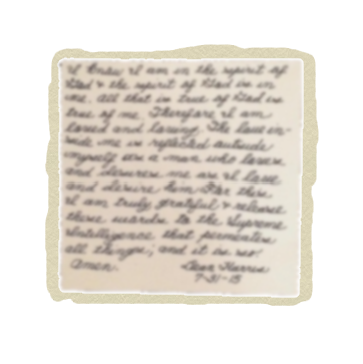 I know I am in the spirit of
God & the spirit of God is in
me. All that is true of God is
true of me. Therefore I am
loved and loving. The love in-
side me is reflected outside
myself as a man who loves
and desires me as I love
and desire him. For this
I am truly grateful & release
these words to the Supreme
Intelligence that permeates
all things; and it is so!
Amen.
7-31-15